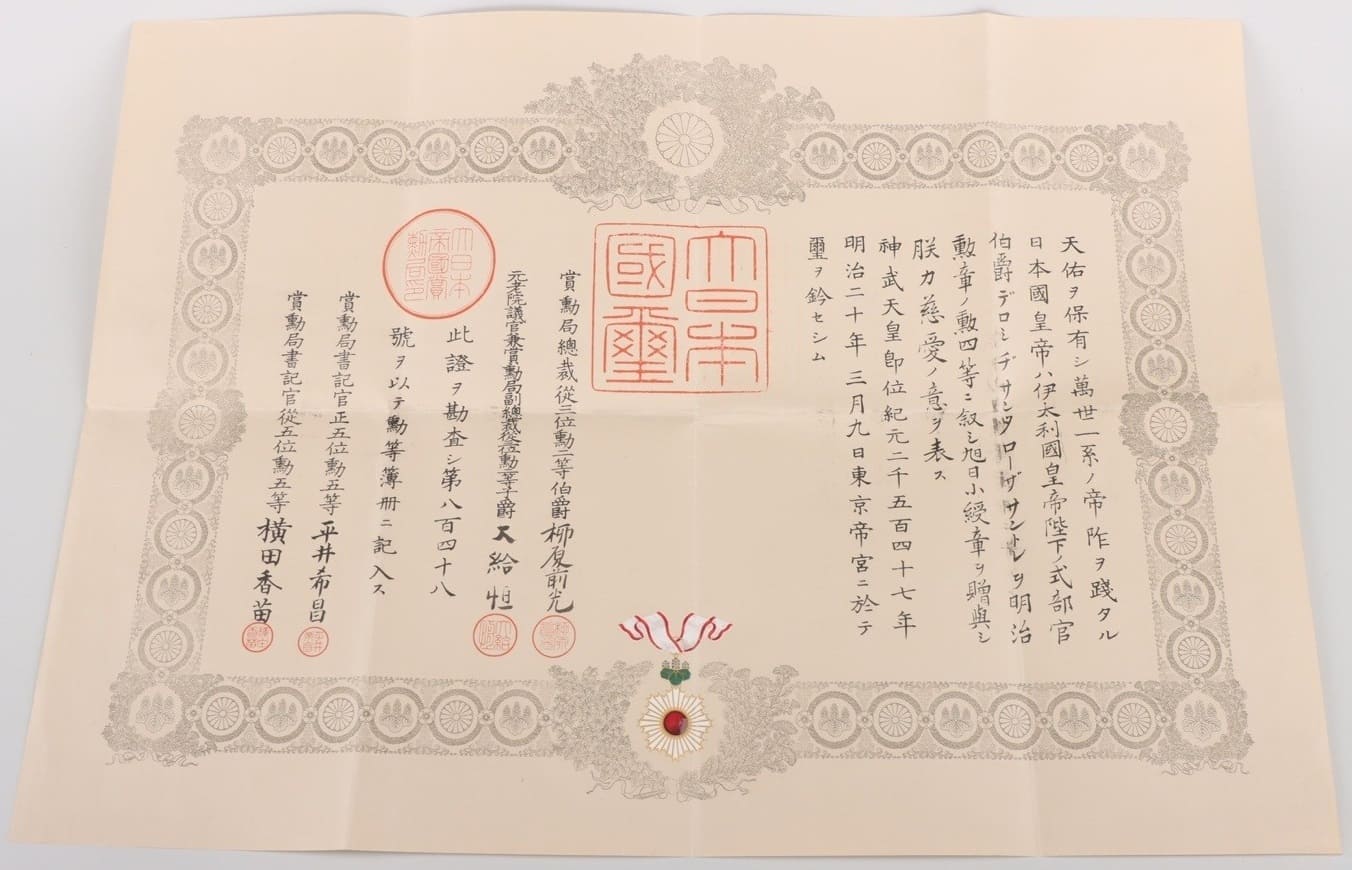 天佑ヲ保有シ萬世一系ノ帝阼ヲ踐タル
日本國皇帝ハ伊太利國皇帝陛下ノ式部官
伯爵デロシヂサンタローザサントレヲ明治
勲章ノ勲四等ニ敍シ旭日小綬章ヲ贈與シ
朕カ慈愛ノ意ヲ表ス
神武天皇卽位紀元二千五百四十七年
明治二十年三月九日東京帝宮ニ於テ
璽ヲ鈐セシム
大日本國璽
賞勲局總裁從三位勲一等伯爵柳原前光
元老院議官兼賞勲局副總裁從四位勲二等子爵大給恒
大日本帝國賞勲局印
此證ヲ勘査シ第八百四十八
號ヲ以テ勲等簿册ニ記入ス
賞勲局書記官正五位勲五等平井希昌
賞勲局書記官從五位勲五等橫田香苗